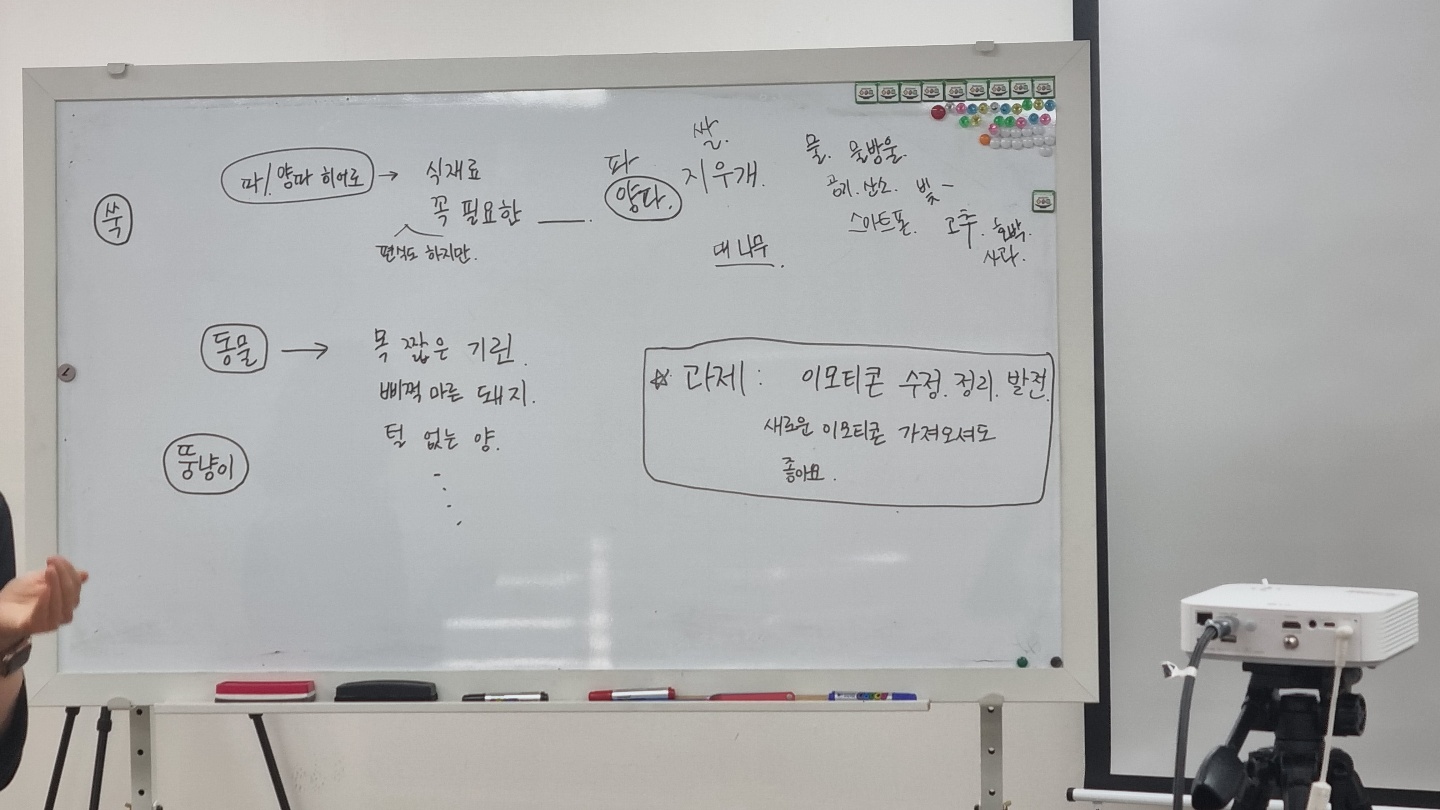 쑥
파/양파 히어로 → 식재료
꼭 필요한 ___.
편식도 하지만.
파
양파.
쌀.
지우개.
대나무.
물. 물방울.
공기. 산소. 빛
스마트폰. 고추. 호박.
사과.
동물 → 목 짧은 기린.
삐쩍 마른 돼지.
털 없는 양.
뚱냥이
☆ 과제: 이모티콘 수정. 정리. 발전.
새로운 이모티콘 가져오셔도
좋아요.